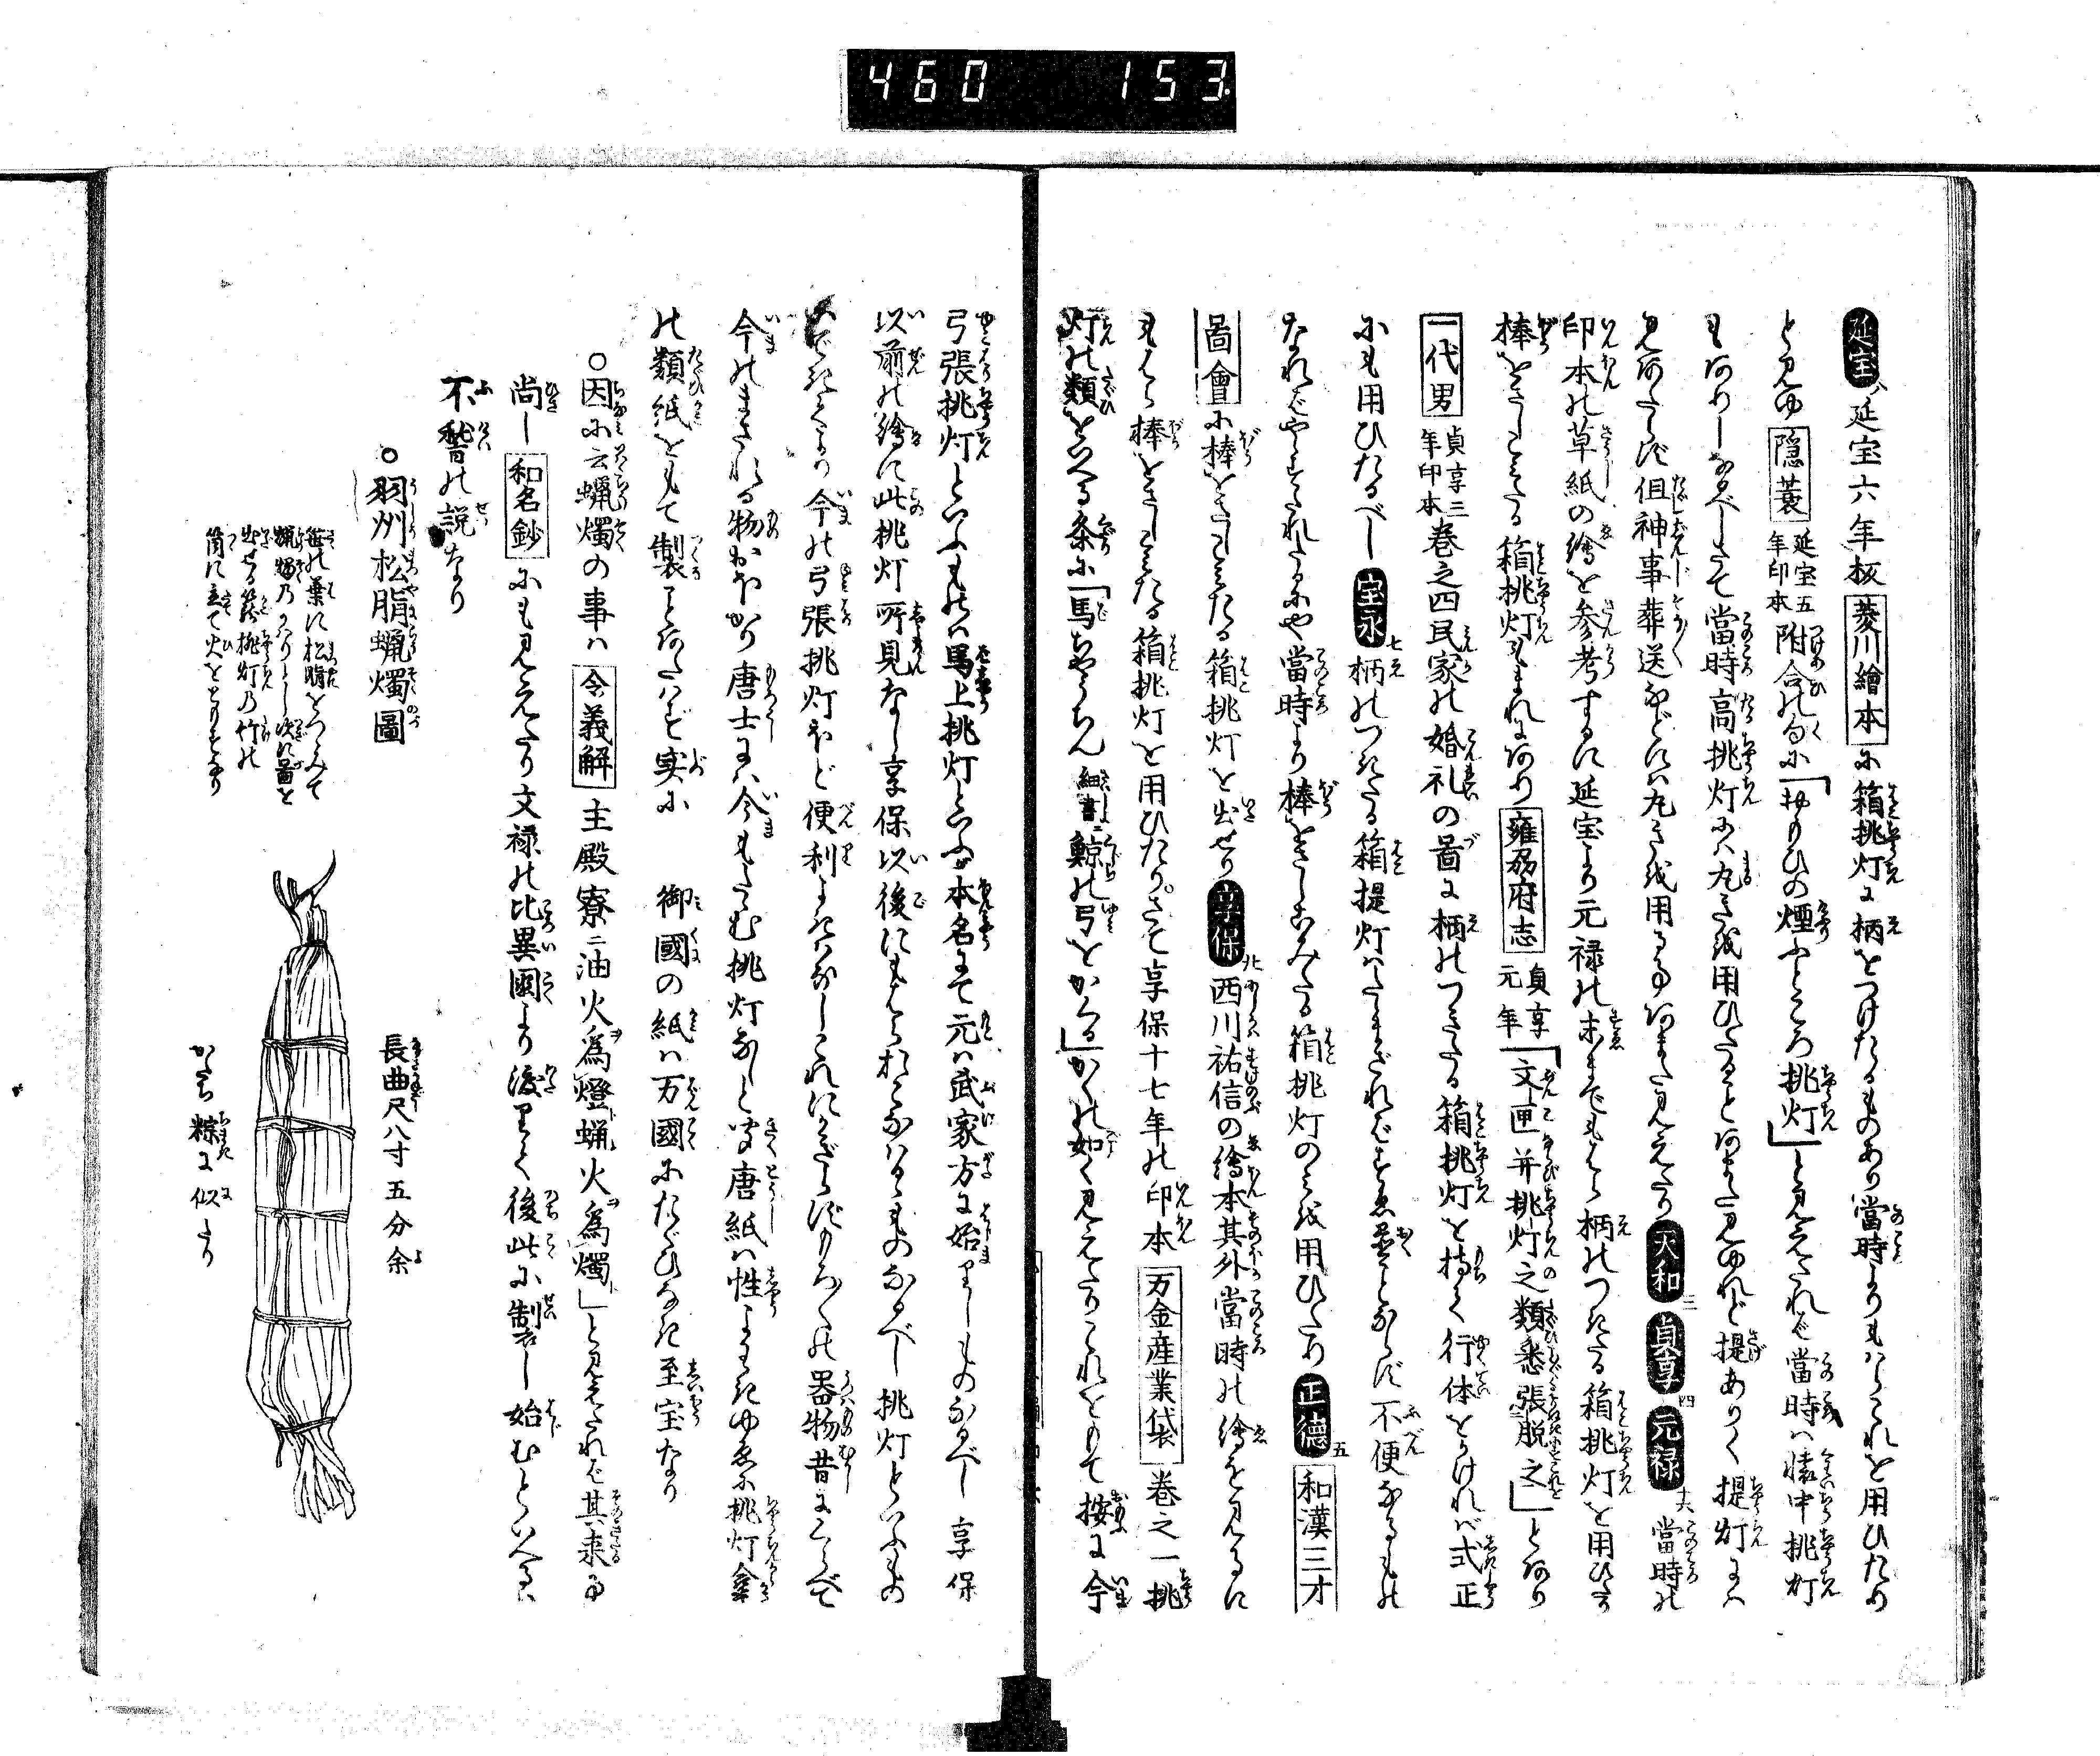 460 153.
延宝八 延宝六年板菱川繪本に箱挑灯に柄をつけたるものあり當時よりもはらこれを用ひたり
と見ゆ隠蓑延宝五年印本附合の句に「おもひの煙ふところ挑灯」と見えたれば當時は懐中挑灯
もありしなるべしさて當時高挑灯には丸きを用ひたることあまた見ゆれど提ありく提灯には
見あたらず但神事葬送などには丸きを用る事あまた見えたり天和三貞享四元禄十六當時の
印本の草紙の繪を参考するに延宝より元禄の末までもはら柄のつきたる箱挑灯を用ひたり
棒をさしこみたる箱挑灯もまれにあり雍州府志貞享元年「文匣并挑灯之類悉張脱之」とあり
一代男貞享三年印本巻之四民家の婚礼の圖に柄のつきたる箱挑灯を持て行体をうけれバ式正
にも用ひたるべし宝永七柄のつきたる箱提灯はたまざれバすゑ置ことならず不便なるもの
なればやうすたれたるにや當時より棒をさしこみたる箱挑灯のみを用ひたり正徳五和漢三才
圖會に棒をさしこみたる箱挑灯を出せり享保廿西川祐信の繪本其外當時の繪を見るに
もはら棒をさしこみたる箱挑灯を用ひたり。さて享保十七年の印本万金産業袋巻之一挑
灯の類をいへる条に「馬ぢやうちん細書ニ鯨の弓をかくる」かくの如く見えたりこれをもて按に今
弓張挑灯といふものは馬上挑灯といふが本名にて元は武家方に始りしものなるべし享保
以前の繪に此挑灯所見なし享保以後にもはらおこなはるゝものなるべし挑灯といふもの
いできてより今の弓張挑灯ほど便利よきはなしこれにかぎらずもろ〱の器物昔にくらべて
今のまされる物おほかり唐土には今もたゝむ挑灯なしと聞く唐紙は性よわきゆゑに挑灯傘
の類紙をもて製ことあたはず実に 御國の紙は万國にたぐひなき至宝なり
○因に云蝋燭の事は令義解主殿寮ニ油火為燈蝋火為燭」と見えたれば其来る事
尚し和名鈔にも見えたり文禄の比異國より渡りて後此に制し始むといへるは
不稽の説なり
○羽州松脂蝋燭圖
笹の葉に松脂をつゝみて
蝋燭乃かはりとし次に圖を
出せる籠挑灯乃竹の
筒に立て火をともすなり
長曲尺八寸五分余
かたち粽に似たり